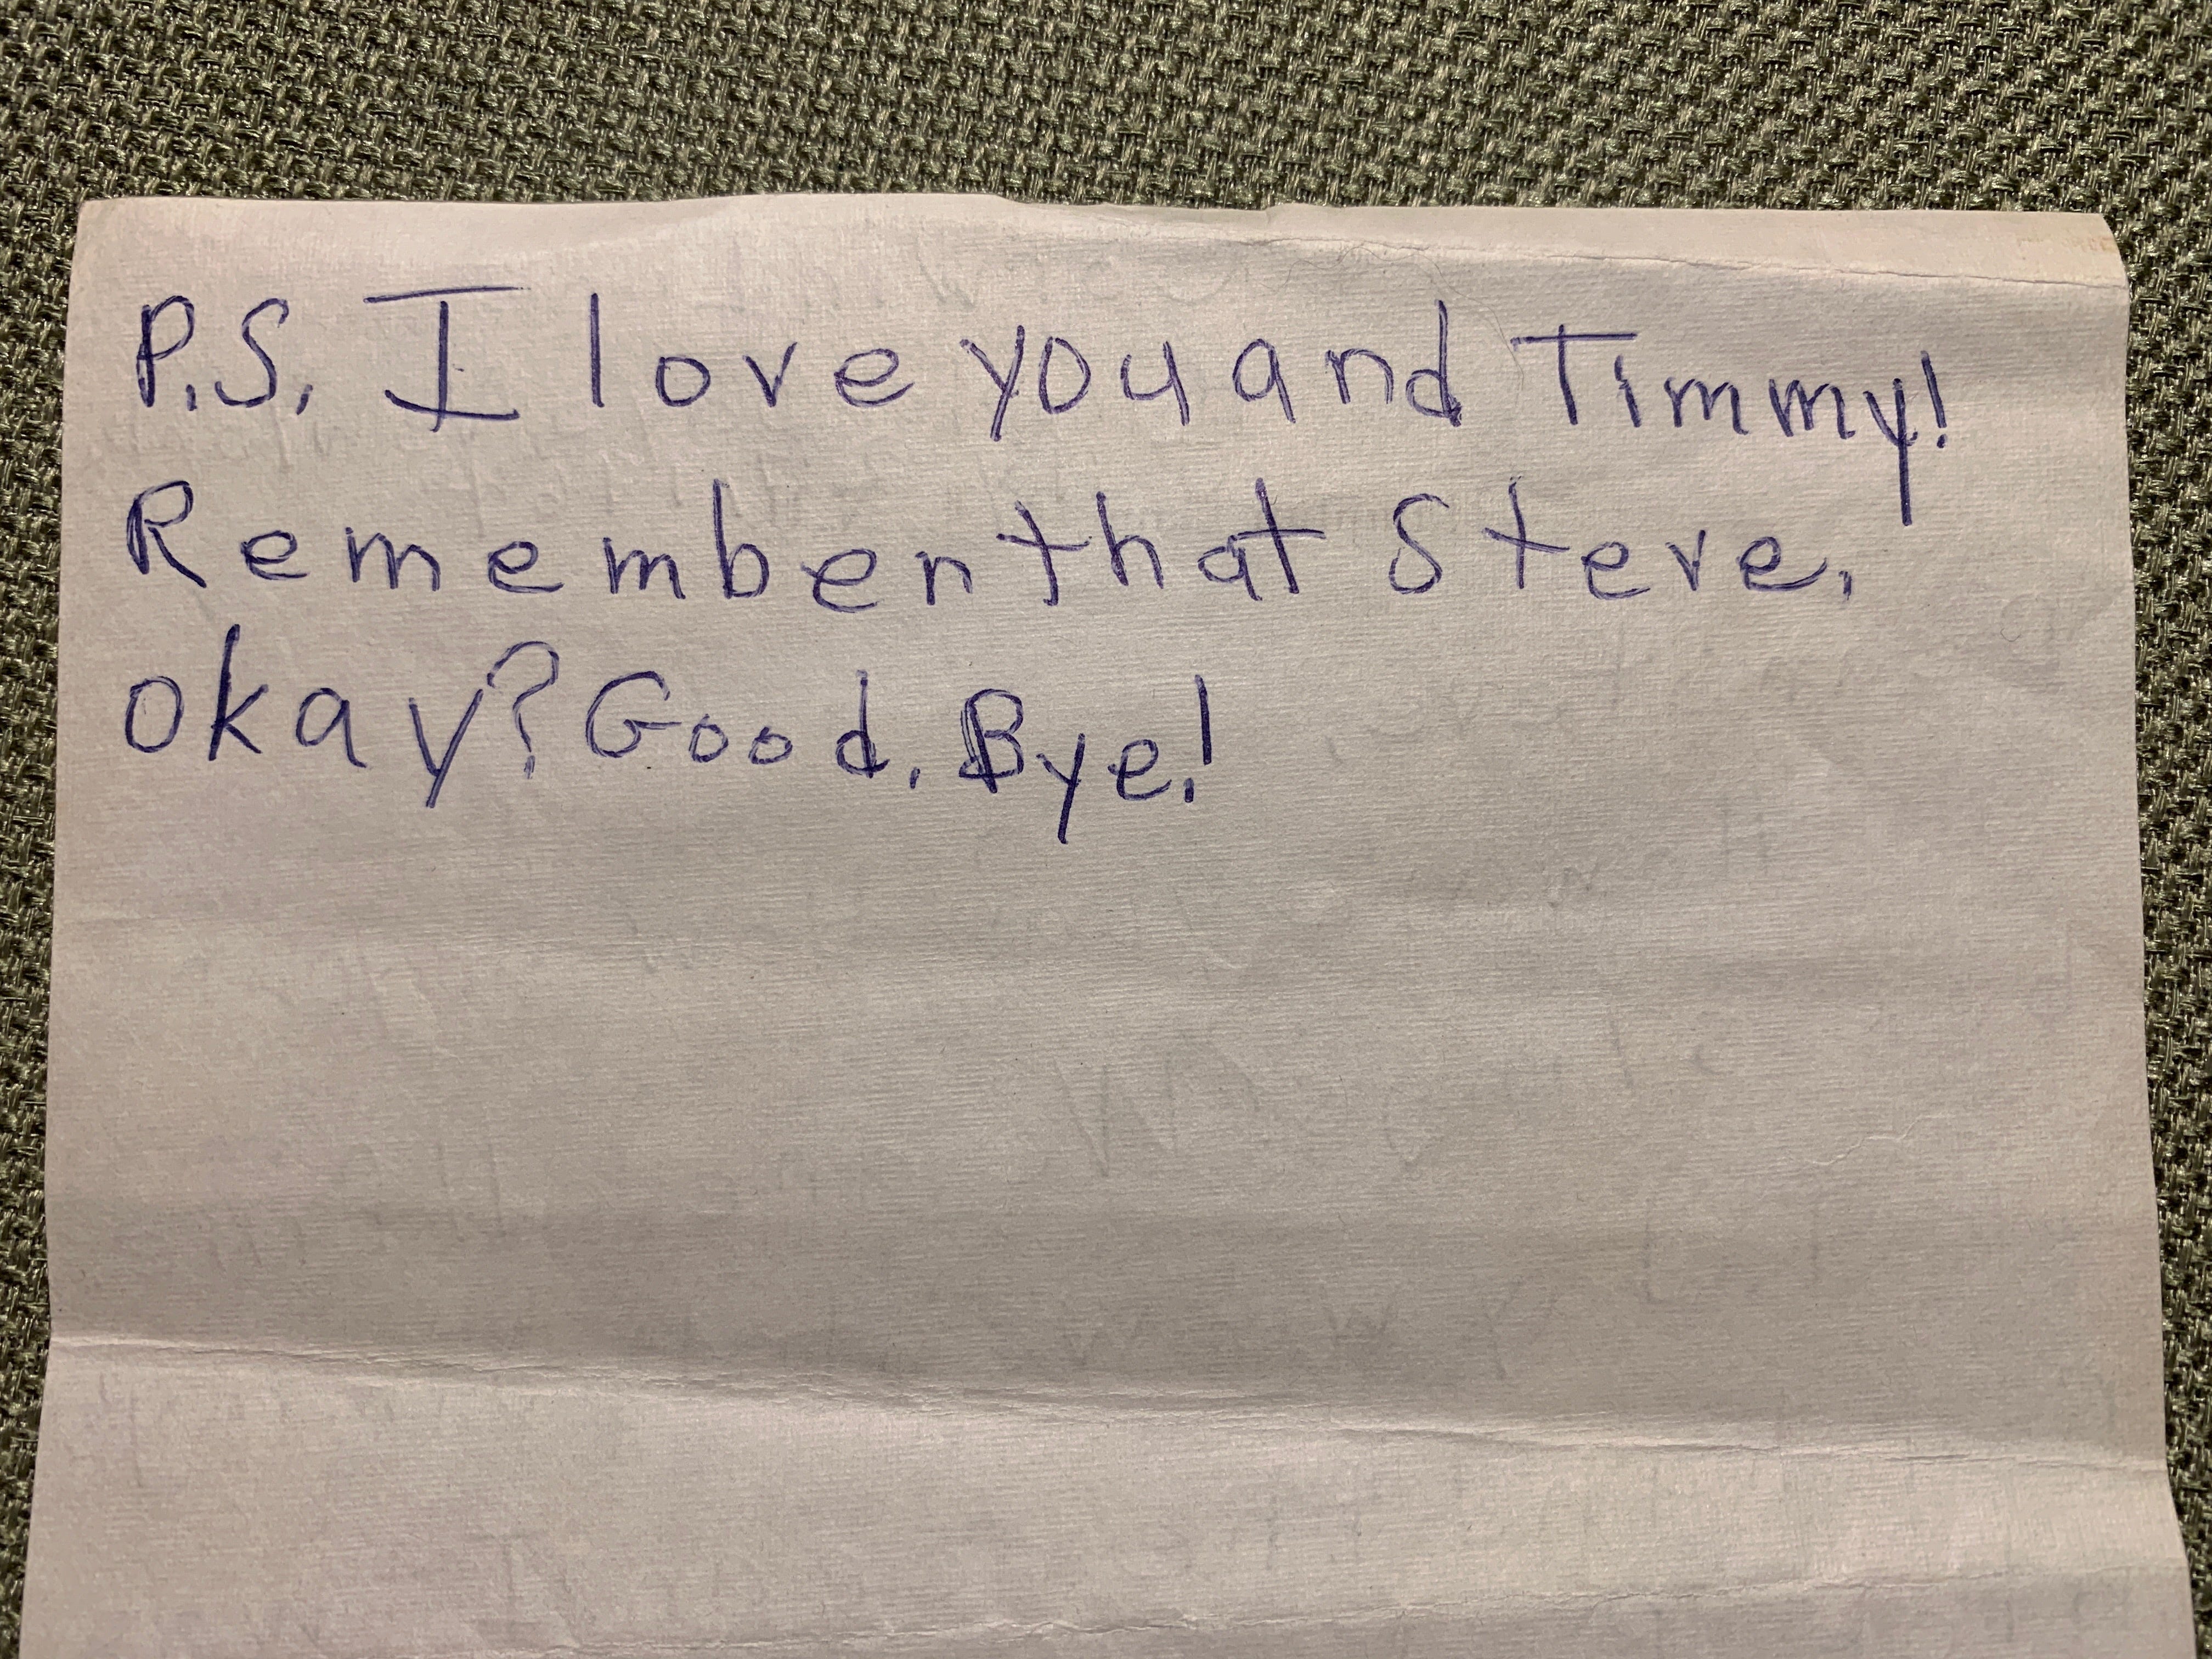 P.S. I love you and Timmy!
Remember that Steve,
okay? Good. Bye!